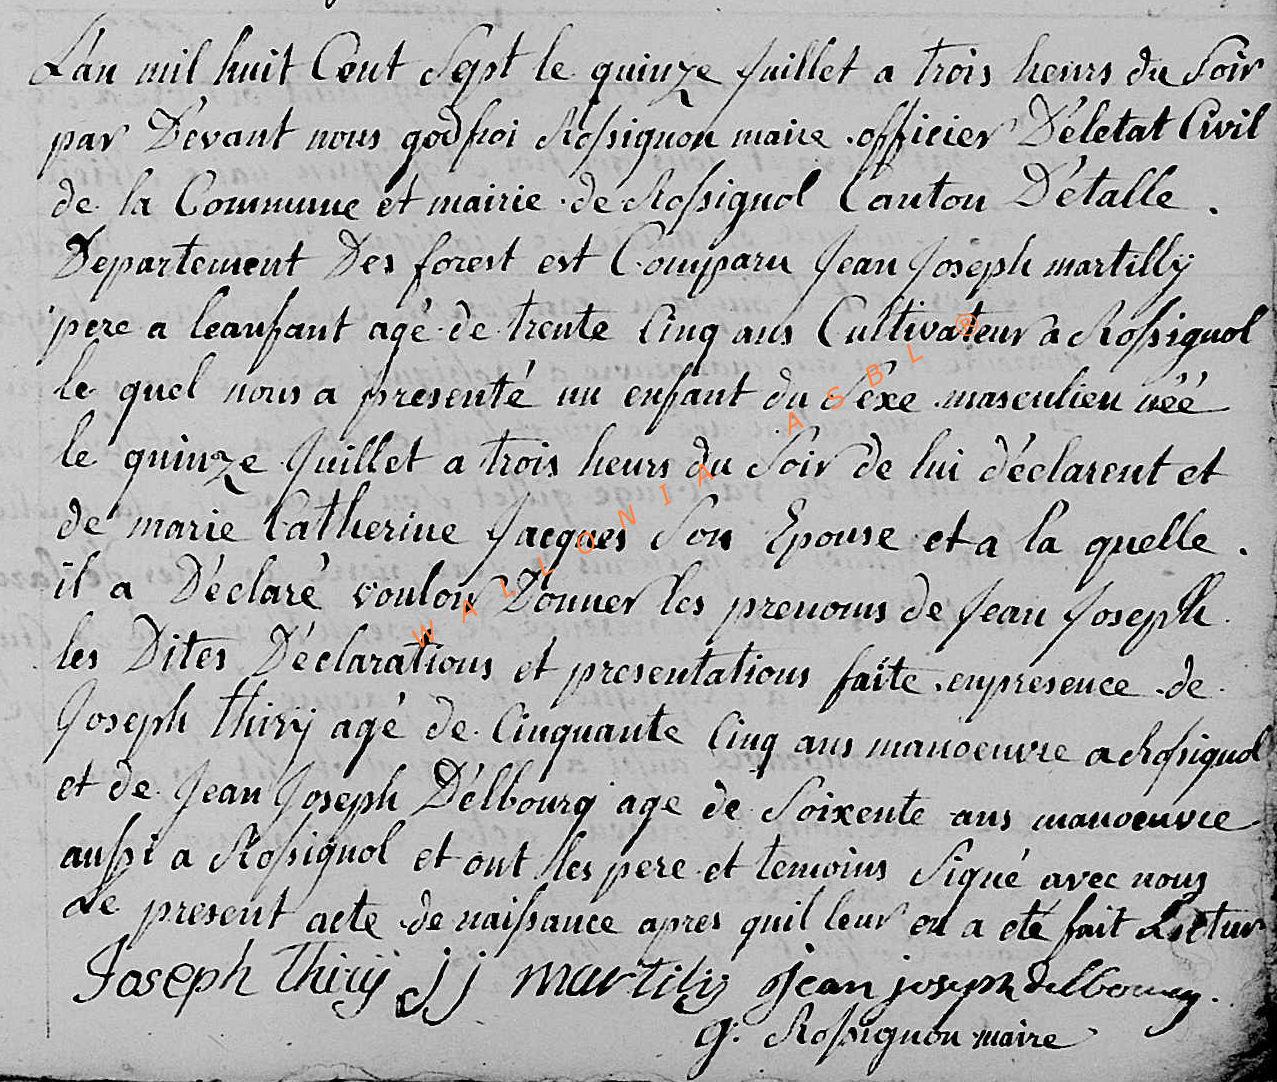 L'an mil huit Cent Sept le quinze Juillet a trois heurs du Soir
par Dévant nous godfroi Rossignon maire officier D'életat Civil
de la Commune et mairie de Rossignol Canton D'étalle.
Departement Des forest est Comparu Jean Joseph martillÿ
pere a leanfant agé de trente Cinq ans Cultivateur a Rossignol
le quel nous a presenté un enfant du Séxe masculien néé
le quinze Juillet a trois heurs du Soir de lui déclarent et
de marie Catherine Jacques Son Epouse et a la quelle.
il a Déclaré vouloir Donner les prenoms de Jean Joseph.
les Dites Déclarations et presentations faite enpresence de
Joseph thirÿ agé de Cinquante Cinq ans manoeuvre a Rossignol
et de Jean Joseph Délbourg age de Soixente ans manoeuvre
aussi a Rossignol et ont les pere et temoins Signé avec nous
Le present acte de naissance apres quil leur en a eté fait Lectur
Joseph thirÿ j j martilÿ jean joseph delbourg.
g. Rossignon maire
WALLONIA ASBL @